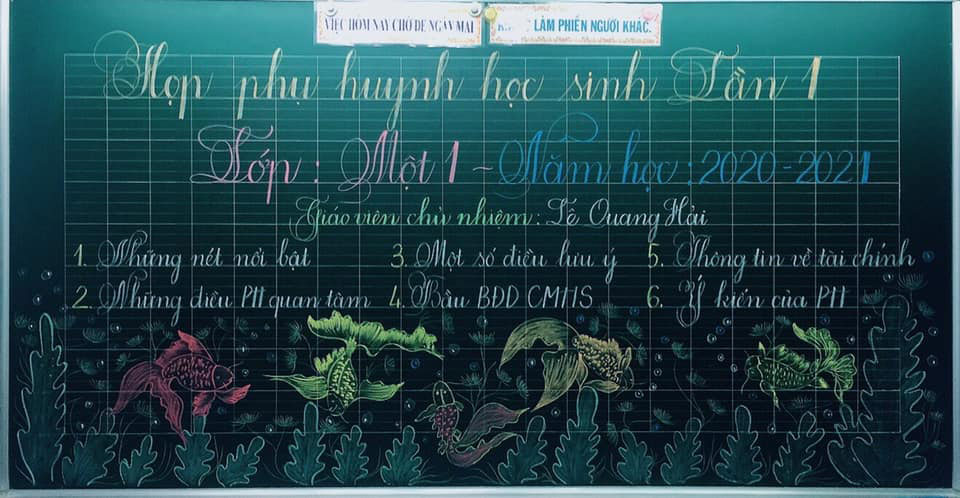 VIỆC HÔM NAY CHỚ ĐỂ NGÀY MAI
LÀM PHIỀN NGƯỜI KHÁC.
Họp phụ huynh học sinh Lần 1
Lớp : Một 1 ~ Năm học : 2020 - 2021
Giáo viên chủ nhiệm : Lê Quang Hải
1. Những nét nổi bật
2. Những điều PH quan tâm
3. Một số điều lưu ý
4. Bầu BĐD CMHS
5. Thông tin về tài chính
6. Ý kiến của PH